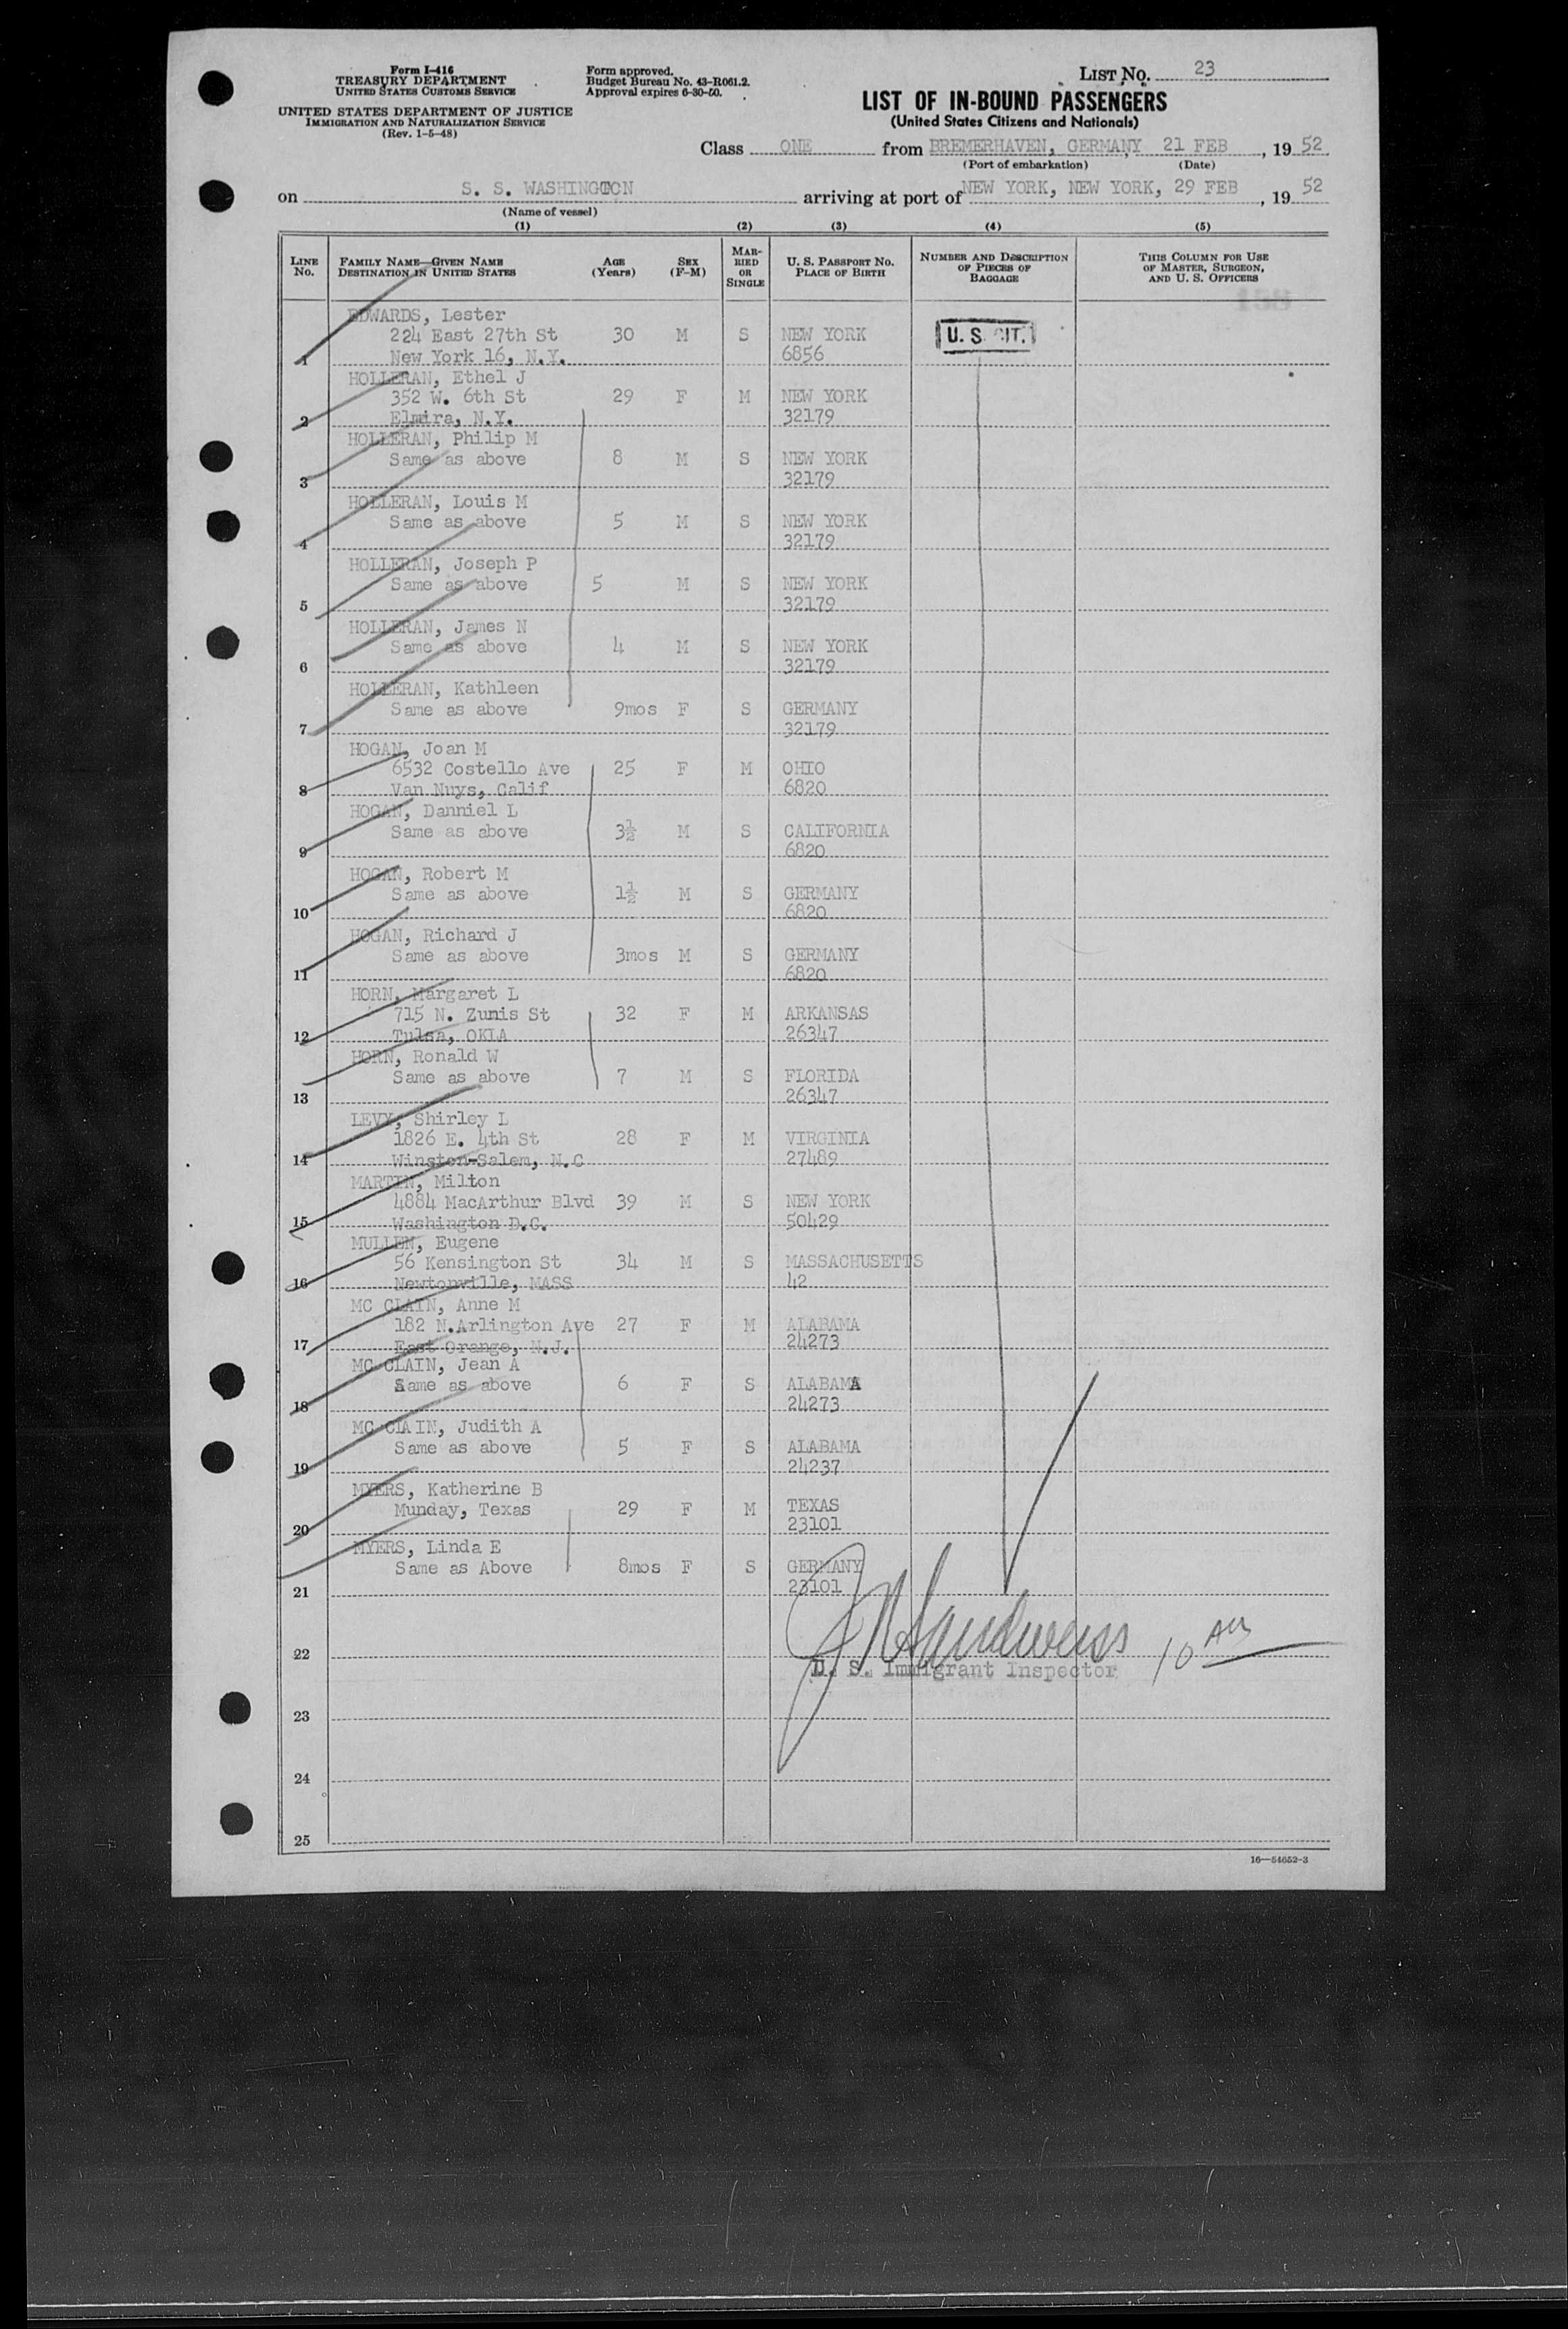 Form I-416
TREASURY DEPARTMENT
UNITED STATES CUSTOMS SERVICE
UNITED STATES DEPARTMENT OF JUSTICE
IMMIGRATION AND NATURALIZATION SERVICE
(Rev. 1-5-48)
Form approved.
Budget Bureau No. 43-R061.2.
Approval expires 6-30-50.
LIST NO. 23
LIST OF IN-BOUND PASSENGERS
(United States Citizens and Nationals)
Class ONE from BREMERHAVEN, GERMANY 21 FEB, 19 52
(Port of embarkation) (Date)
on S. S. WASHINGTON arriving at port of NEW YORK, NEW YORK, 29 FEB, 19 52
(Name of vessel)
(1) (2) (3) (4) (5)
LINE NO.
FAMILY NAME—GIVEN NAME
DESTINATION IN UNITED STATES
AGE (Years)
SEX (F-M)
MARRIED OR SINGLE
U. S. PASSPORT NO.
PLACE OF BIRTH
NUMBER AND DESCRIPTION OF PIECES OF BAGGAGE
THIS COLUMN FOR USE OF MASTER, SURGEON, AND U. S. OFFICERS
EDWARDS, Lester
224 East 27th St 30 M S NEW YORK U. S. CIT.
1 New York 16, N.Y. 6856
HOLLERAN, Ethel J
352 W. 6th St 29 F M NEW YORK
2 Elmira, N.Y. 32179
HOLLERAN, Philip M
Same as above 8 M S NEW YORK
3 32179
HOLLERAN, Louis M
Same as above 5 M S NEW YORK
4 32179
HOLLERAN, Joseph P
Same as above 5 M S NEW YORK
5 32179
HOLLERAN, James N
Same as above 4 M S NEW YORK
6 32179
HOLLERAN, Kathleen
Same as above 9mos F S GERMANY
7 32179
HOGAN, Joan M
6532 Costello Ave 25 F M OHIO
8 Van Nuys, Calif 6820
HOGAN, Danniel L
Same as above 3½ M S CALIFORNIA
9 6820
HOGAN, Robert M
Same as above 1½ M S GERMANY
10 6820
HOGAN, Richard J
Same as above 3mos M S GERMANY
11 6820
HORN, Margaret L
715 N. Zunis St 32 F M ARKANSAS
12 Tulsa, OKLA 26347
HORN, Ronald W
Same as above 7 M S FLORIDA
13 26347
LEVY, Shirley L
1826 E. 4th St 28 F M VIRGINIA
14 Winston-Salem, N.C 27489
MARTIN, Milton
4884 MacArthur Blvd 39 M S NEW YORK
15 Washington D.C. 50429
MULLEN, Eugene
56 Kensington St 34 M S MASSACHUSETTS
16 Newtonville, MASS 42
MC CLAIN, Anne M
182 N.Arlington Ave 27 F M ALABAMA
17 East Orange, N.J. 24273
MC CLAIN, Jean A
Same as above 6 F S ALABAMA
18 24273
MC CLAIN, Judith A
Same as above 5 F S ALABAMA
19 24237
MYERS, Katherine B
Munday, Texas 29 F M TEXAS
20 23101
MYERS, Linda E
Same as Above 8mos F S GERMANY
21 23101
22
U. S. Immigrant Inspector 10 AM
23
24
25
16—54652-3